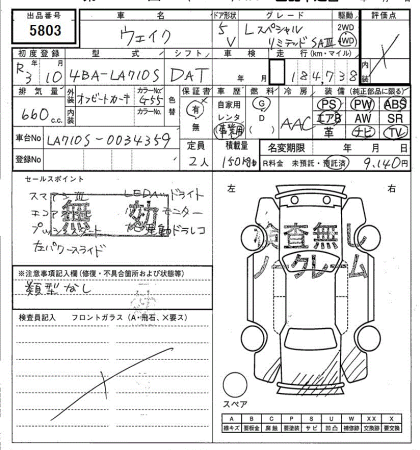 出品番号 車名 ドア形状 グレード 駆動 評価点
5803 ウェイク 5 V Lスペシャル リミテッドSAⅢ 2WD 4WD
初度登録 型式 シフト 車検 走行(km・マイル)
R3 10 4BA-LA710S DAT 年 月 184,738
排気量 外装 内装 カラーNo. 色替 保証書 車歴 燃料 冷房 装備(純正部品に限る)
660 c.c. オフビートカーキ G55 有 無 自家用 レンタ 事業用 G D AAC PS PW ABS
エアB AW SR
革 ナビ TV
車台No LA710S-0034359 定員 積載量 名変期限 年 月 日
登録No 2人 150kg R料金 未預託・預託済 9,140円
セールスポイント
スマアシⅢ LEDヘッドライト
無効
左パワースライド
※注意事項記入欄(修復・不具合箇所および状態等)
類型なし
検査員記入 フロントガラス(A・飛石、X要ス)
左 右
検査無し
ノークレーム
スペア
A B C P S U W X XX X
線キズ 要板金 腐蝕 要塗装 サビ 凹凸 補修跡 交換跡 要交換